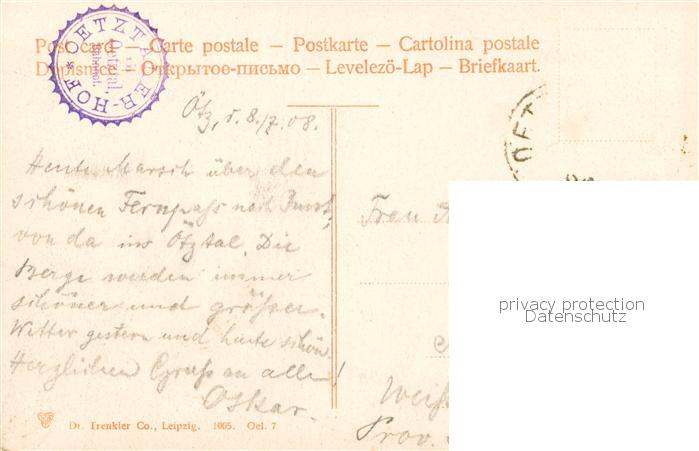 Post card – Carte postale – Postkarte – Cartolina postale
Dopisnice – Открытое-письмо – Levelezö-Lap – Briefkaart.
OETZTALER-HOF
Ötztal,
Bahnhof.
Ötz, d. 8./7.08.
Heute Marsch über den
schönen Fernpaß nach Imst,
von da ins Ötztal. Die
Berge werden immer
schöner und größer.
Wetter gestern und heute schön.
Herzlichen Gruß an alle!
Oskar.
Frau
Weiß
Prov.
OET
privacy protection
Datenschutz
Dr. Trenkler Co., Leipzig. 1905. Oel. 7